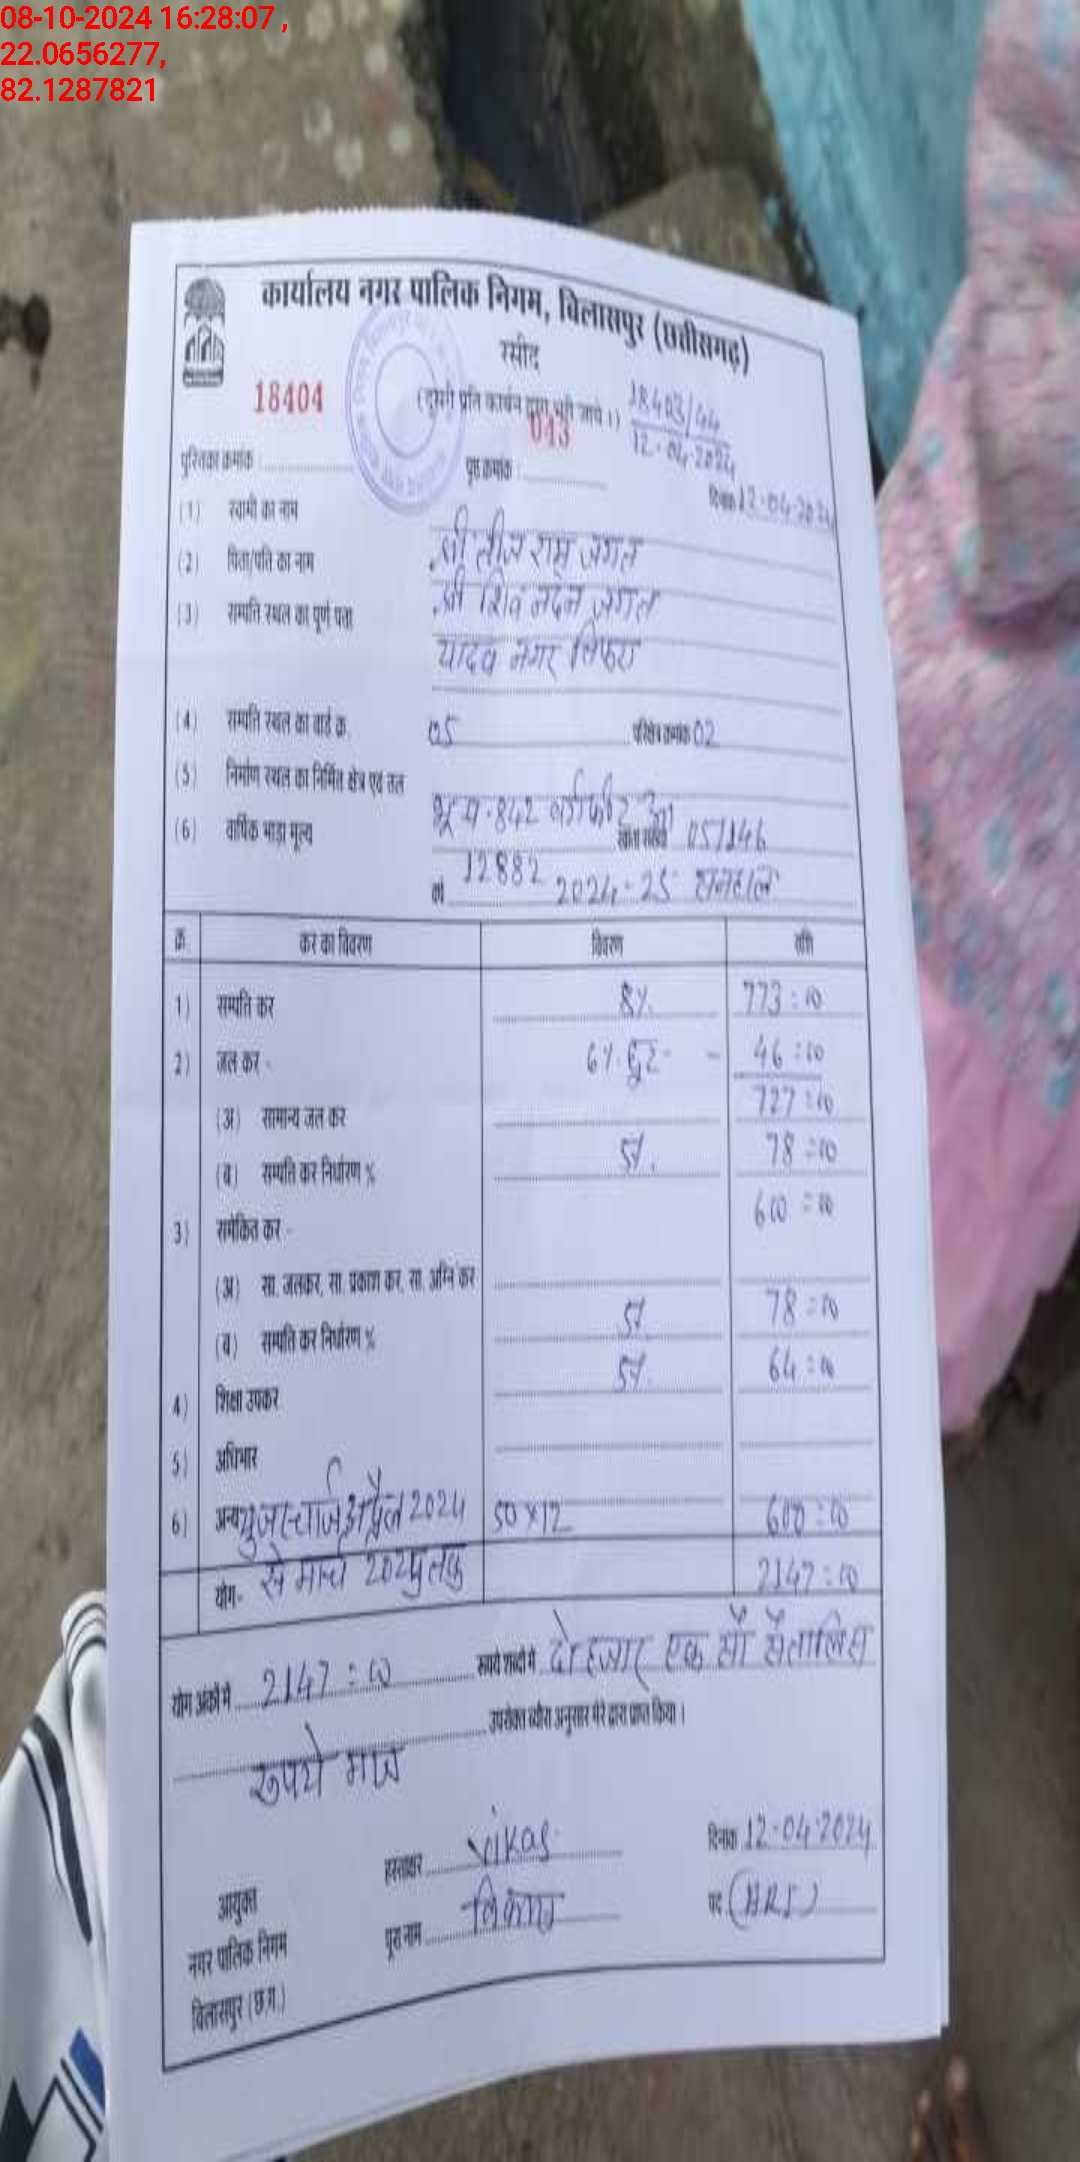 08-10-2024 16:28:07 ,
22.0656277,
82.1287821
कार्यालय नगर पालिक निगम, बिलासपुर (छत्तीसगढ़)
रसीद
18404
(दूसरी प्रति कार्बन द्वारा भरी जाये।)
18403/44
043
12-04-2024
पुस्तिका क्रमांक :
पृष्ठ क्रमांक :
दिनांक 12-04-2024
(1) स्वामी का नाम श्री तीज राम जगत
(2) पिता/पति का नाम श्री शिव नंदन जगत
(3) सम्पत्ति स्थल का पूर्ण पता यादव नगर तिफरा
(4) सम्पत्ति स्थल का वार्ड क्र. 05 परिक्षेत्र क्रमांक 02
(5) निर्माण स्थल का निर्मित क्षेत्र एवं तल भू.त.-842 वर्गफीट
(6) वार्षिक भाड़ा मूल्य 12882 051146
2024-25
क्र. कर का विवरण विवरण राशि
1) सम्पत्ति कर 8%. 773=00
2) जल कर - 6%. छूट - 46=00
727=00
(अ) सामान्य जल कर
(ब) सम्पत्ति कर निर्धारण % 5%. 78=00
3) समेकित कर - 600=00
(अ) सा. जलकर, सा. प्रकाश कर, सा. अग्नि कर
(ब) सम्पत्ति कर निर्धारण % 5%. 78=00
4) शिक्षा उपकर 5%. 64=00
5) अधिभार
6) अन्य यूजर चार्ज अप्रैल 2024 50×12 600=00
से मार्च 2025 तक
योग- 2147=00
योग अंकों में 2147=00 रूपये शब्दों में दो हजार एक सौ सैंतालिस
रूपये मात्र उपरोक्त ब्यौरा अनुसार मेरे द्वारा प्राप्त किया।
हस्ताक्षर Vikas दिनांक 12-04-2024
आयुक्त
पूरा नाम विकास पद (ARI)
नगर पालिक निगम
बिलासपुर (छ.ग.)